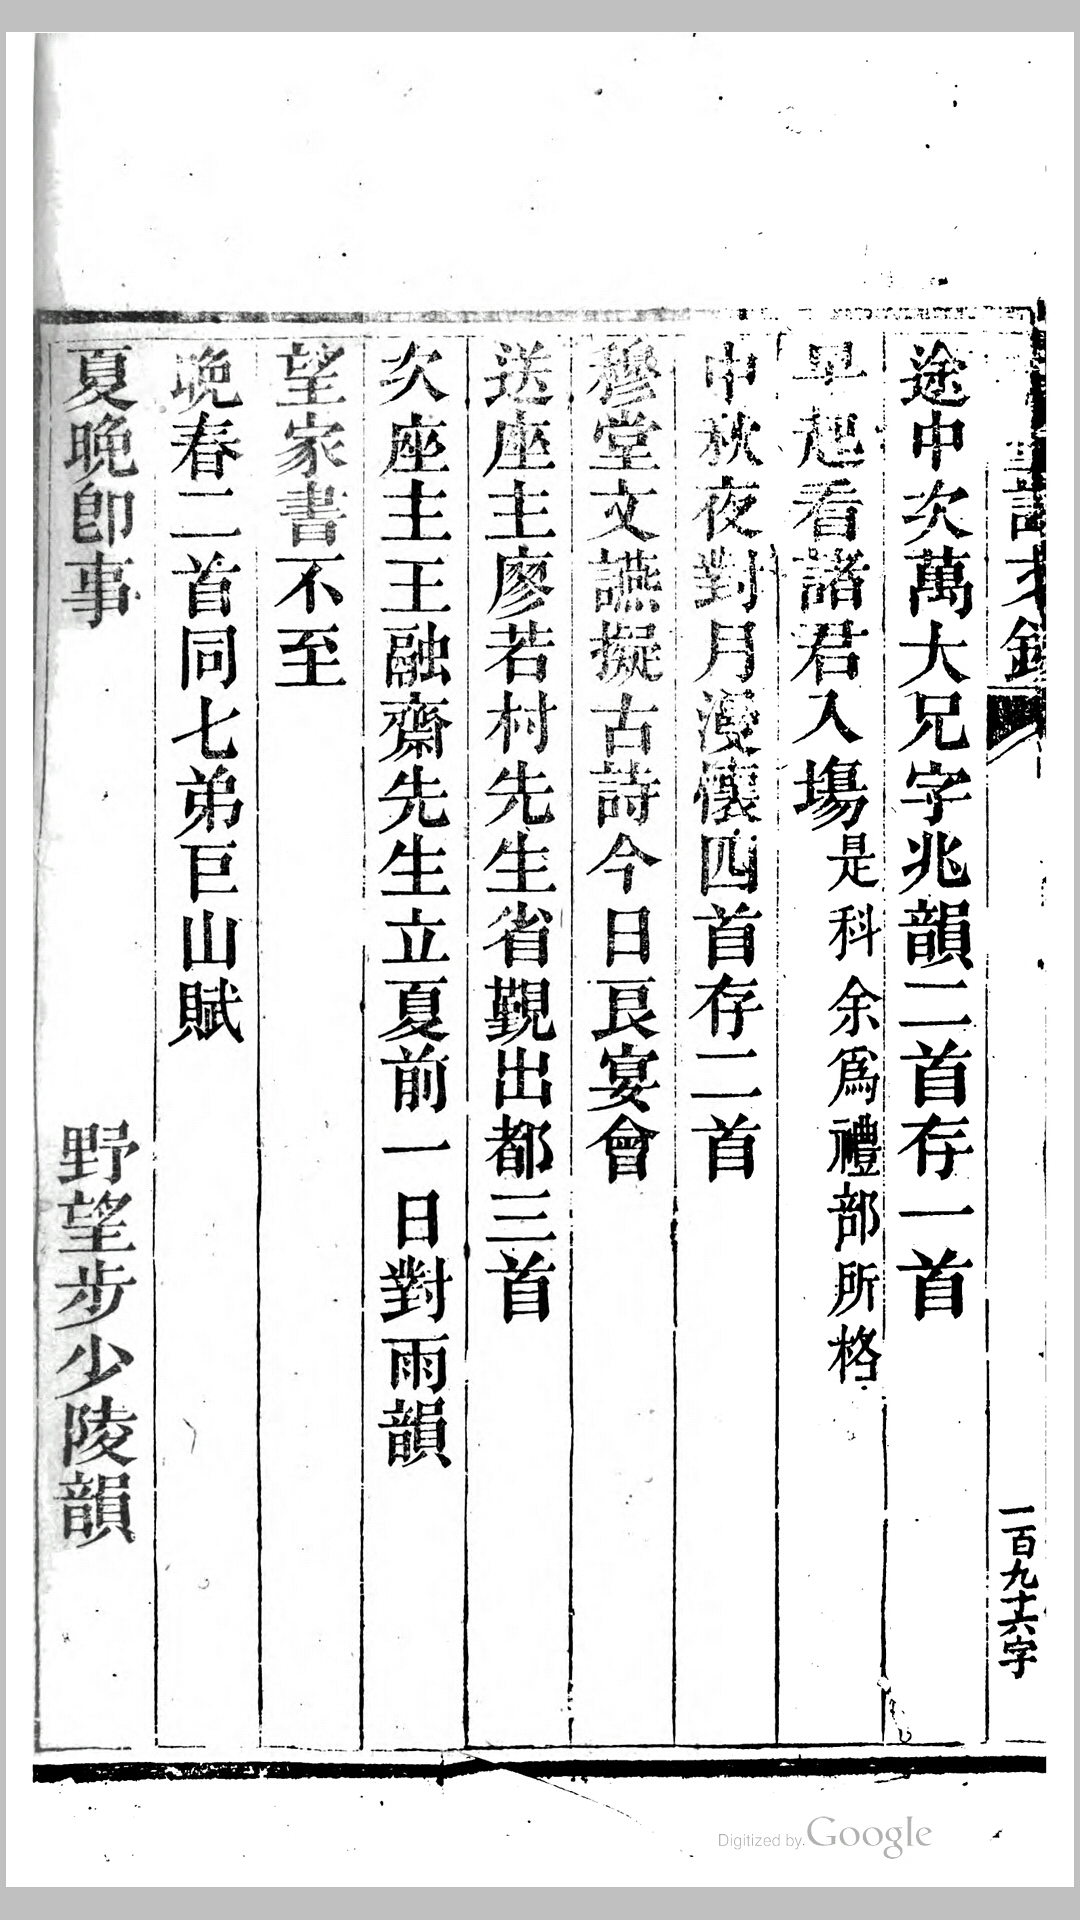 途中次萬大兄字兆韻二首存一首
早起看諸君入塲是科余爲禮部所格
中秋夜對月漫懷四首存二首
穆堂文讌擬古詩今日良宴會
送座主廖若村先生省覲出都三首
次座主王融齋先生立夏前一日對雨韻
望家書不至
晚春二首同七弟巨山賦
夏晚卽事 野望步少陵韻
一百九十六字
Digitized by Google